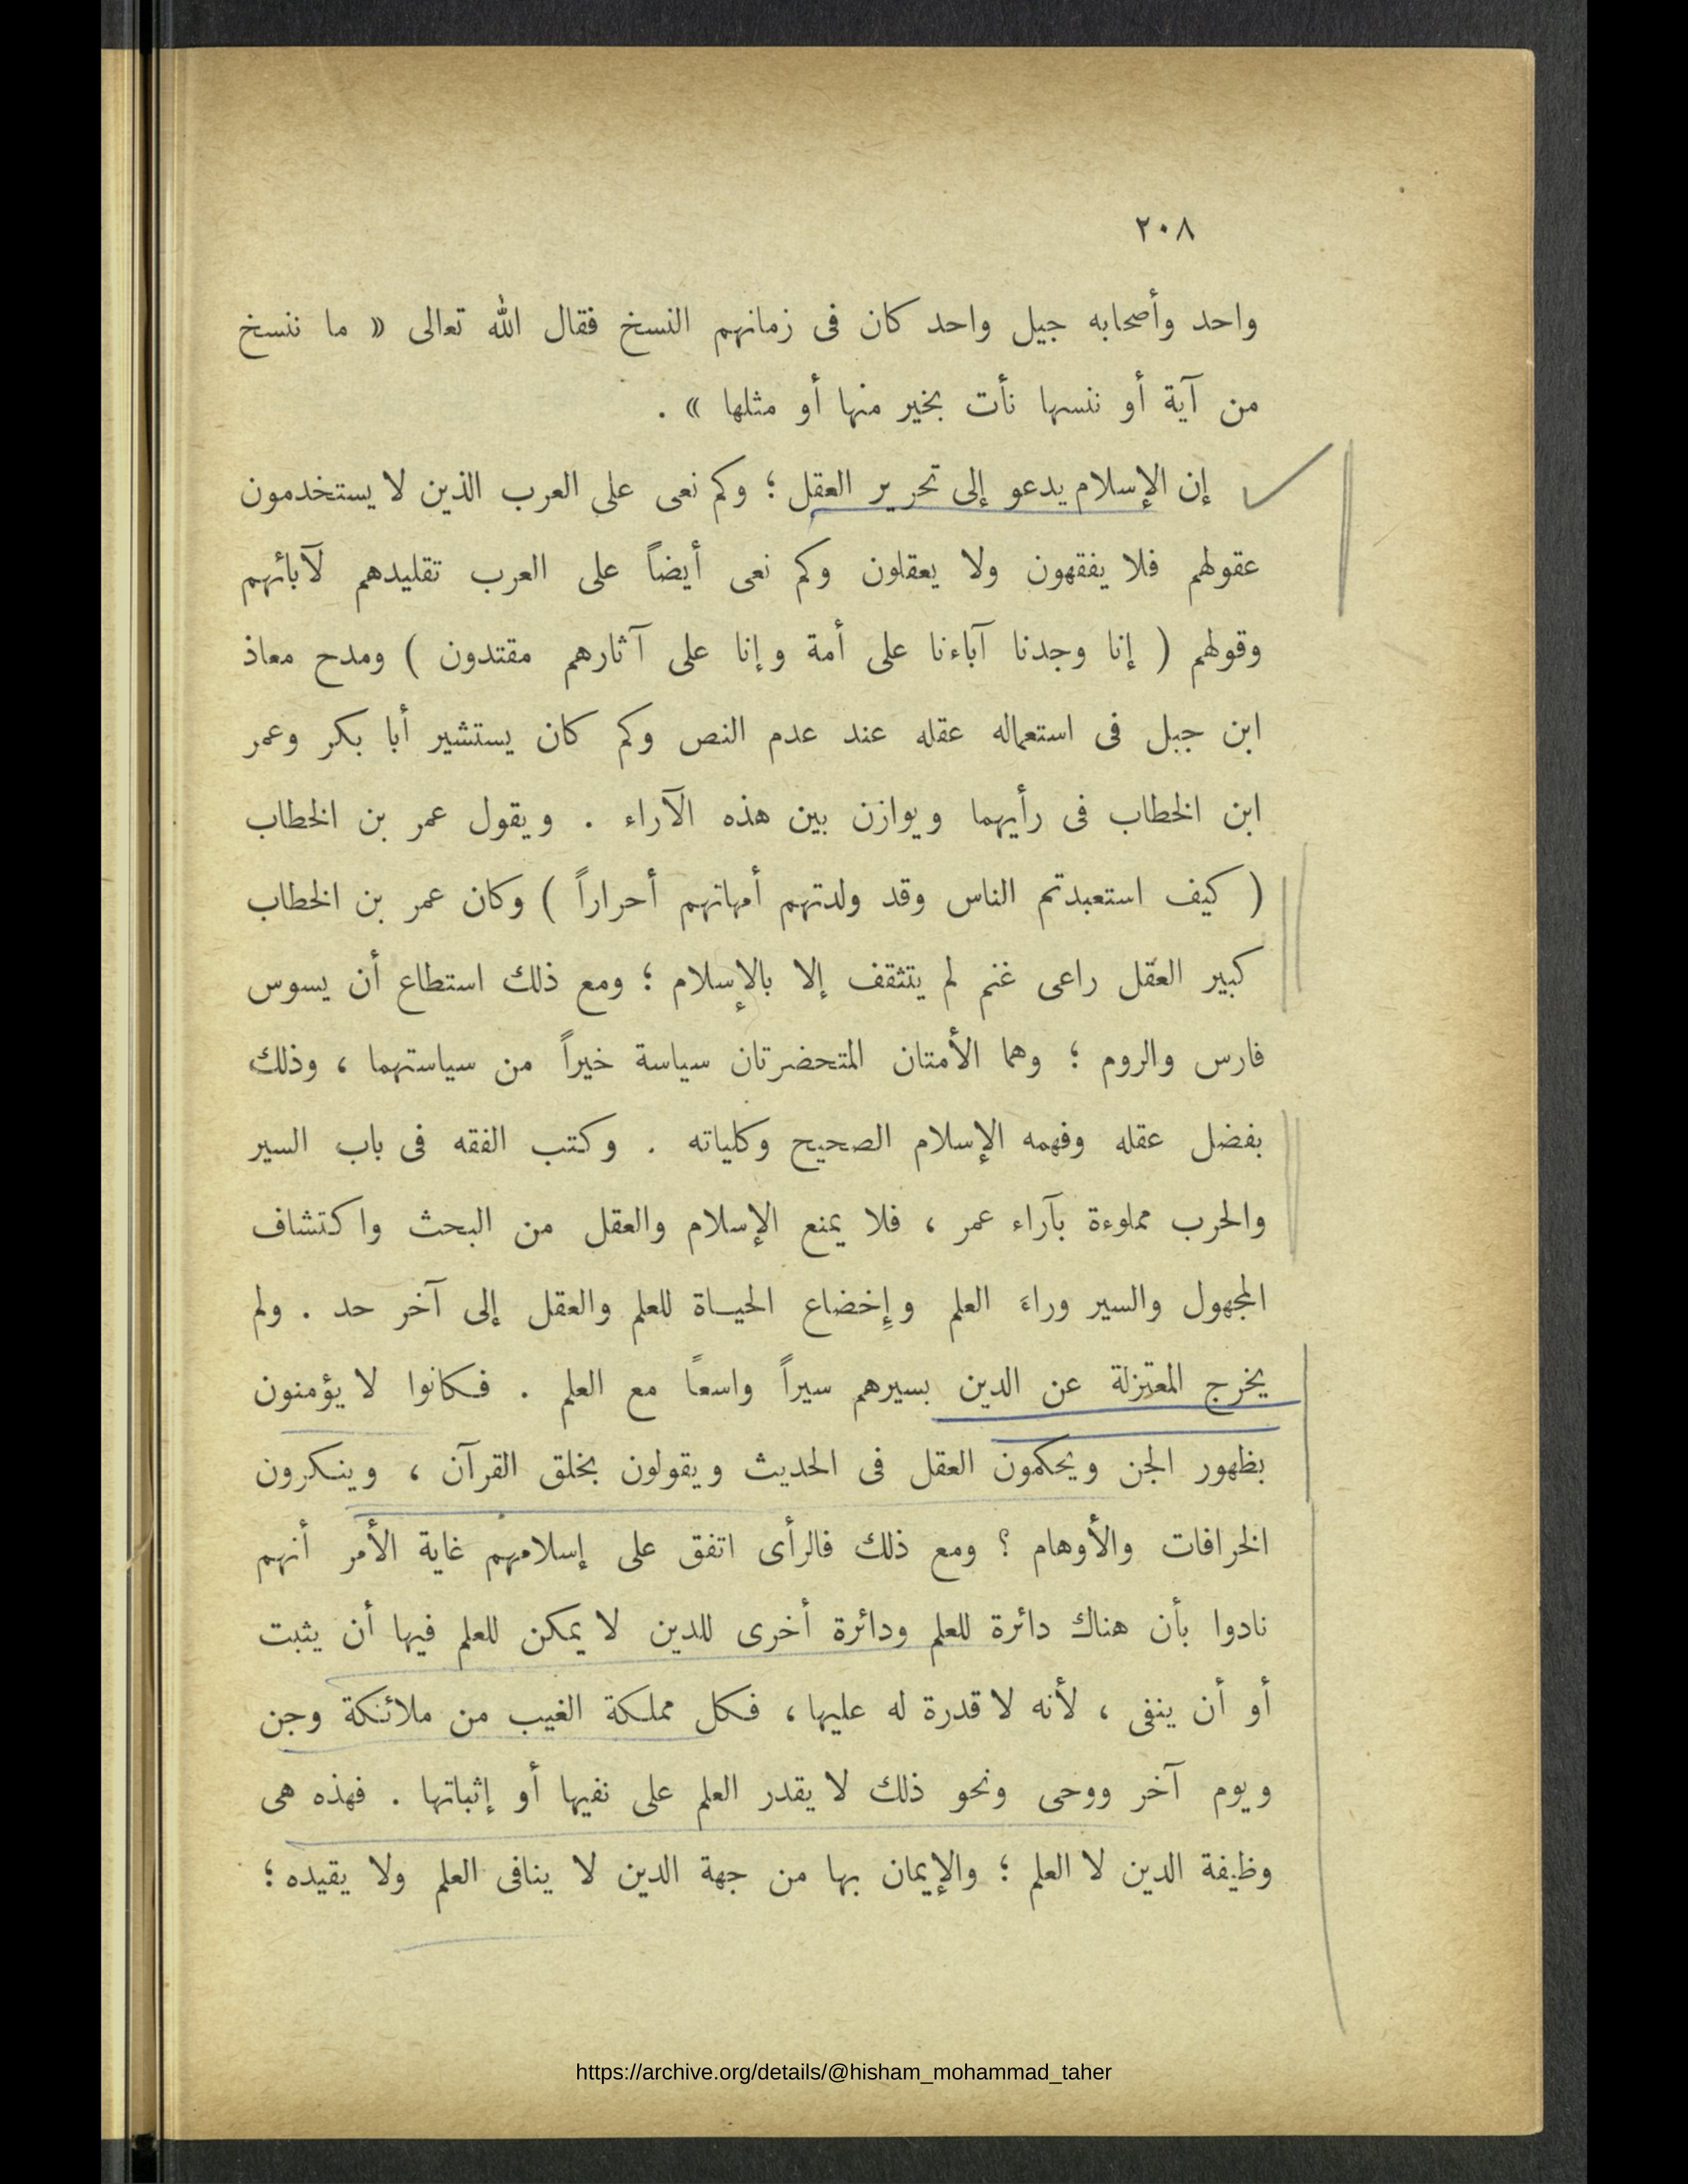 ٢٠٨
واحد وأصحابه جيل واحد كان فى زمانهم النسخ فقال الله تعالى « ما ننسخ
من آية أو ننسها نأت بخير منها أو مثلها » .
إن الإسلام يدعو إلى تحرير العقل ؛ وكم نعى على العرب الذين لا يستخدمون
عقولهم فلا يفقهون ولا يعقلون وكم نعى أيضاً على العرب تقليدهم لآبائهم
وقولهم ( إنا وجدنا آباءنا على أمة وإنا على آثارهم مقتدون ) ومدح معاذ
ابن جبل فى استعماله عقله عند عدم النص وكم كان يستشير أبا بكر وعمر
ابن الخطاب فى رأيهما ويوازن بين هذه الآراء . ويقول عمر بن الخطاب
( كيف استعبدتم الناس وقد ولدتهم أمهاتهم أحراراً ) وكان عمر بن الخطاب
كبير العقل راعى غنم لم يتثقف إلا بالإسلام ؛ ومع ذلك استطاع أن يسوس
فارس والروم ؛ وهما الأمتان المتحضرتان سياسة خيراً من سياستهما ، وذلك
بفضل عقله وفهمه الإسلام الصحيح وكلياته . وكتب الفقه فى باب السير
والحرب مملوءة بآراء عمر ، فلا يمنع الإسلام والعقل من البحث واكتشاف
المجهول والسير وراء العلم وإخضاع الحياة للعلم والعقل إلى آخر حد . ولم
يخرج المعتزلة عن الدين بسيرهم سيراً واسعاً مع العلم . فكانوا لا يؤمنون
بظهور الجن ويحكمون العقل فى الحديث ويقولون بخلق القرآن ، وينكرون
الخرافات والأوهام ؟ ومع ذلك فالرأى اتفق على إسلامهم غاية الأمر أنهم
نادوا بأن هناك دائرة للعلم ودائرة أخرى للدين لا يمكن للعلم فيها أن يثبت
أو أن ينفى ، لأنه لا قدرة له عليها ، فكل مملكة الغيب من ملائكة وجن
ويوم آخر ووحى ونحو ذلك لا يقدر العلم على نفيها أو إثباتها . فهذه هى
وظيفة الدين لا العلم ؛ والإيمان بها من جهة الدين لا ينافى العلم ولا يقيده ؛
https://archive.org/details/@hisham_mohammad_taher